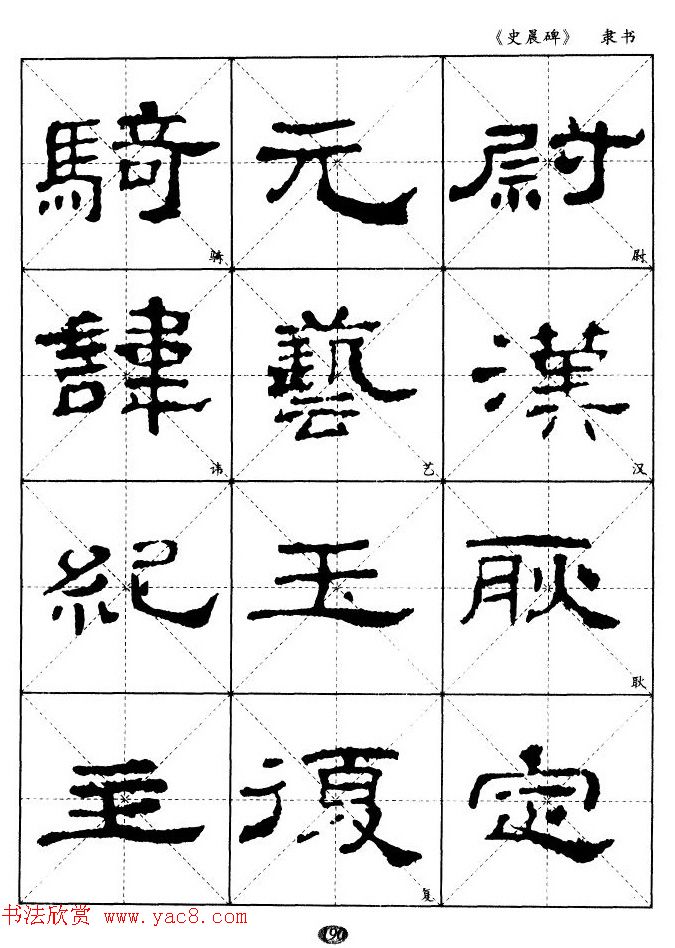 《史晨碑》 隶书
騎 元 尉
骑 尉
諱 藝 漢
讳 艺 汉
紀 玉 耿
耿
主 復 定
复
书法欣赏 www.yac8.com